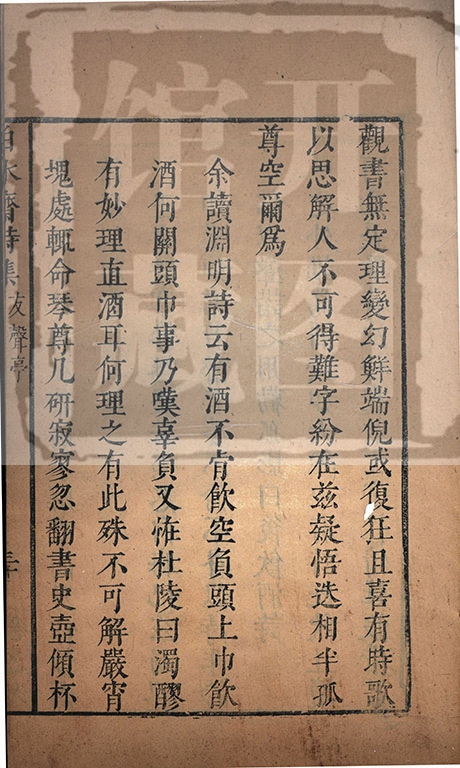 觀書無定理變幻鮮端倪或復狂且喜有時歌
以思解人不可得難字紛在茲疑悟迭相半孤
尊空爾為
余讀淵明詩云有酒不肯飲空負頭上巾飲
酒何關頭巾事乃嘆辜負又怪杜陵曰濁醪
有妙理直酒耳何理之有此殊不可解嚴宵
塊處輒命琴尊几研寂寥忽翻書史壺傾杯
齋詩集 友聲亭